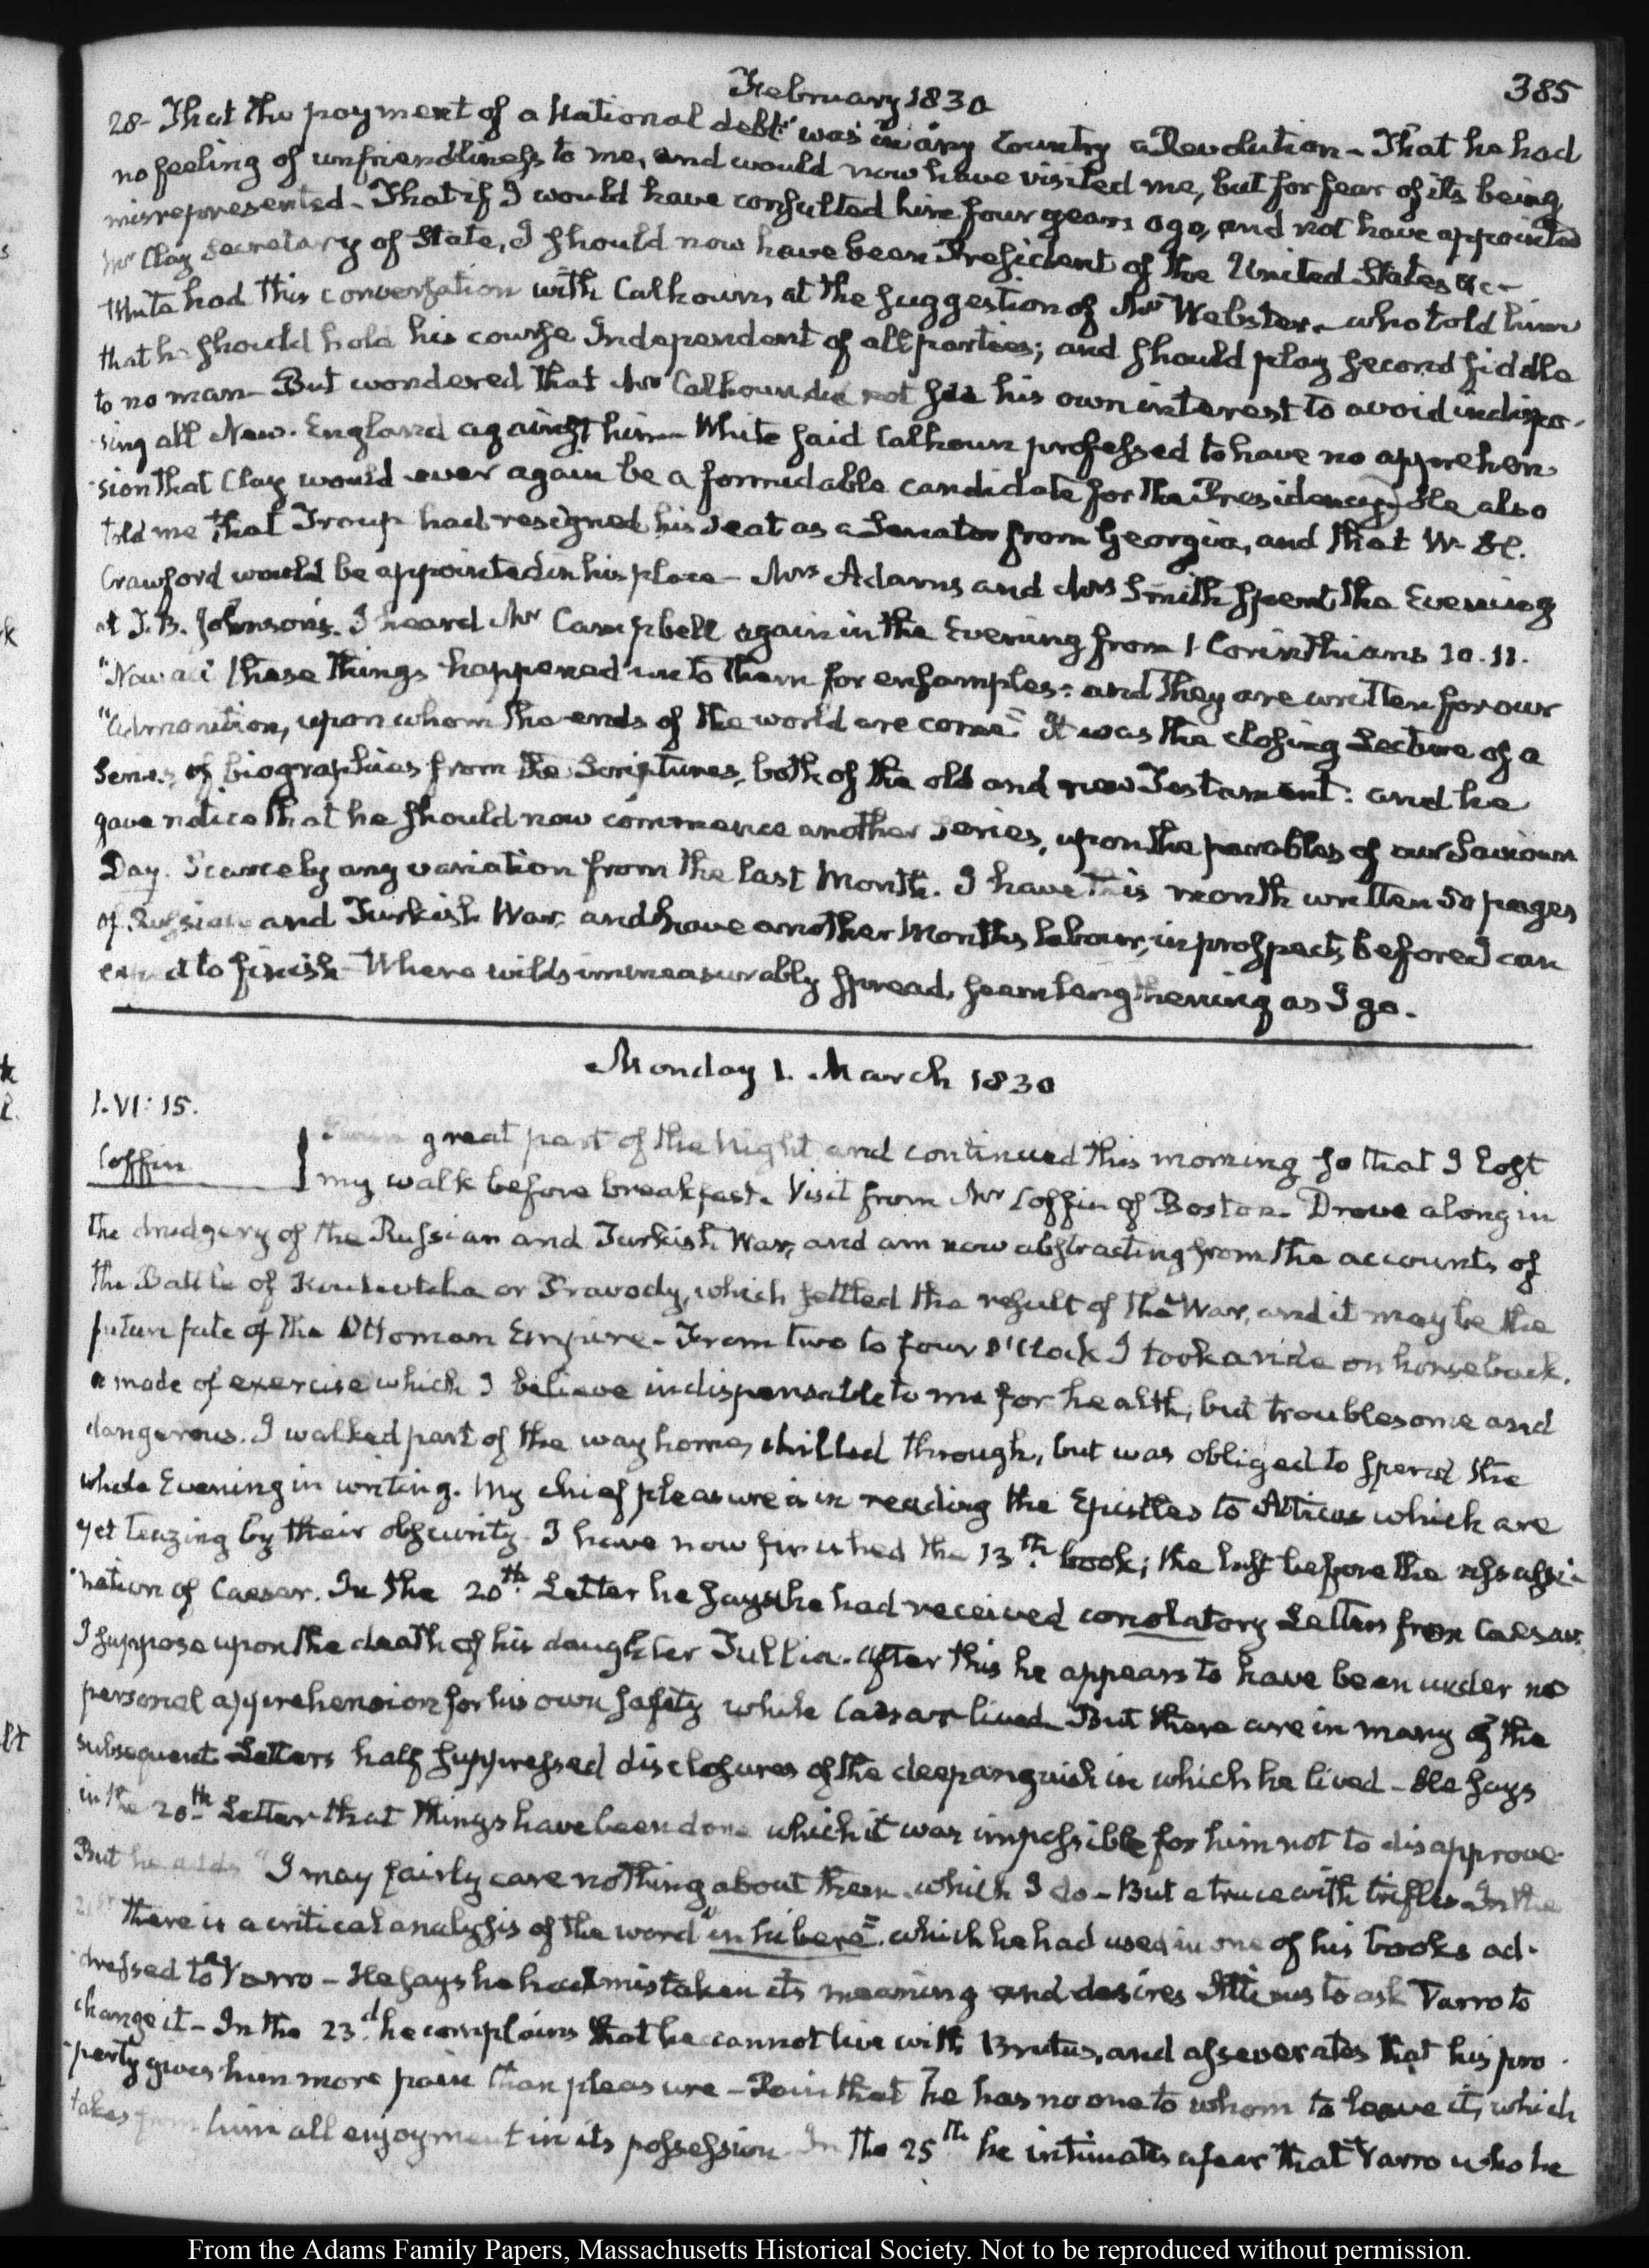 February 1830
385
28- That the payment of a National debt was in any Country a Revolution - That he had
no feeling of unfriendliness to me, and would now have visited me, but for fear of its being
misrepresented - That if I would have consulted him four years ago, and not have appointed
Mr Clay Secretary of State, I should now have been President of the United States &c -
White had this conversation with Calhoun, at the suggestion of Mr Webster - who told him
that he should hold his course Independent of all parties; and should play second fiddle
to no man - But wondered that Mr Calhoun did not see his own interest to avoid indispo-
sing all New-England against him - White said Calhoun professed to have no apprehen-
sion that Clay would ever again be a formidable candidate for the Presidency) He also
told me that Troup had resigned his Seat as a Senator from Georgia, and that W. H.
Crawford would be appointed in his place - Mrs Adams and Mrs Smith spent the Evening
at J. B. Johnson's. I heard Mr Campbell again in the Evening from 1 Corinthians 10.11.
"Now all these things happened unto them for ensamples: and they are written for our
"admonition, upon whom the ends of the world are come" It was the closing Lecture of a
Series of biographies from the Scriptures, both of the old and new Testament: and he
gave notice that he should now commence another Series, upon the parables of our Saviour
Day. Scarcely any variation from the last Month. I have this month written 50 pages
of Russian and Turkish War, and have another Months labour, in prospect, before I can
to finish - Where wilds immeasurably spread, seem lengthening as I go.
Monday 1. March 1830
1. VI: 15.
great part of the Night and continued this morning so that I lost
Coffin
my walk before breakfast. Visit from Mr Coffin of Boston - Drove along in
the drudgery of the Russian and Turkish War, and am now abstracting from the accounts of
the Battle of Koulevtcha or Pravody, which settled the result of the War, and it may be the
future fate of the Ottoman Empire - From two to four O'Clock I took a ride on horseback.
a mode of exercise which I believe indispensable to me for health, but troublesome and
dangerous. I walked part of the way home, chilled through, but was obliged to spend the
whole Evening in writing. My chief pleasure is in reading the Epistles to Atticus which are
yet teazing by their obscurity. I have now finished the 13th. book; the last before the assassi-
nation of Caesar. In the 20th. Letter he says he had received consolatory Letters from Caesar,
I suppose upon the death of his daughter Tullia. After this he appears to have been under no
personal apprehension for his own safety while Caesar lived - But there are in many of the
subsequent Letters half suppressed disclosures of the deep anguish in which he lived - He says
in the 20th Letter that things have been done which it was impossible for him not to disapprove.
But he adds "I may fairly care nothing about them - which I do - But a truce with trifles - In the
21st there is a critical analysis of the word "inhibere". which he had used in one of his books ad-
dressed to Varro - He says he had mistaken its meaning and desires Atticus to ask Varro to
change it - In the 23.d he complains that he cannot live with Brutus, and asseverates that his pro-
perty gives him more pain than pleasure - Pain that he has no one to whom to leave it, which
takes from him all enjoyment in its possession - In the 25th he intimates a fear that Varro who he
From the Adams Family Papers, Massachusetts Historical Society. Not to be reproduced without permission.